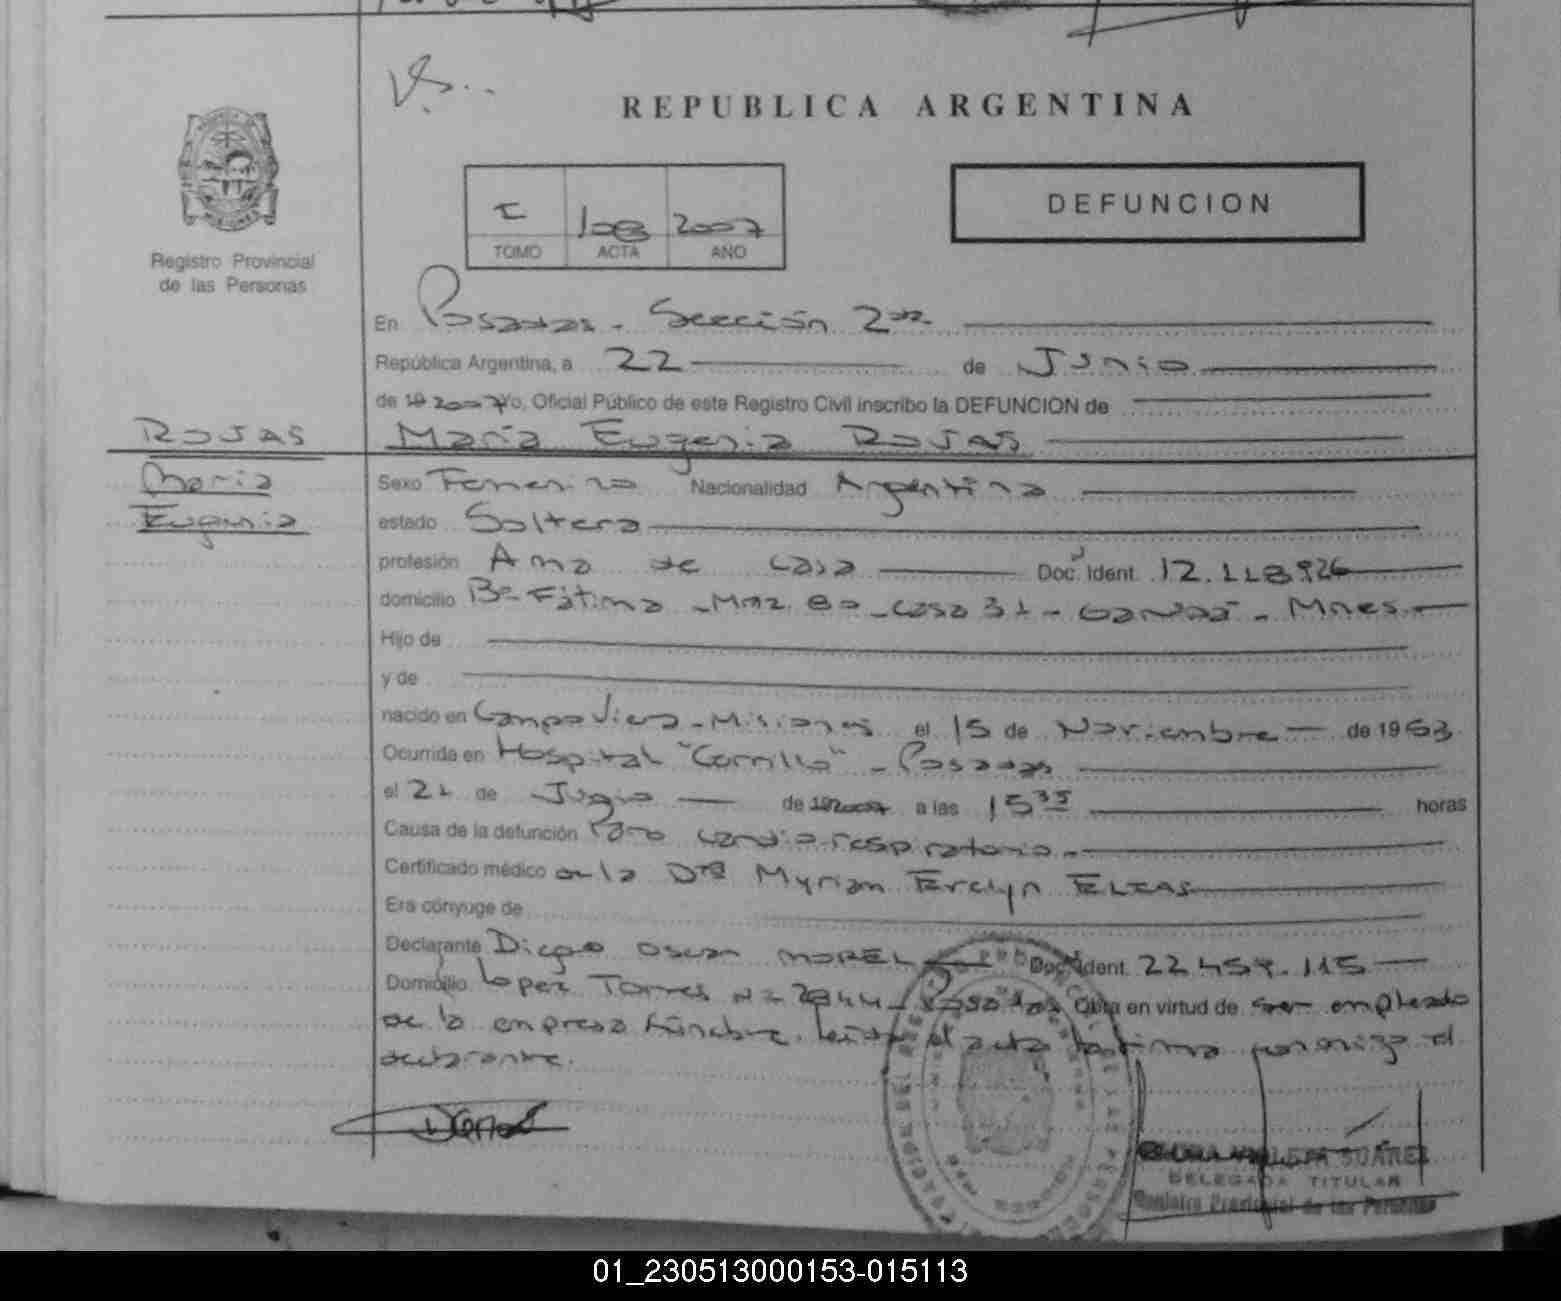 REPUBLICA ARGENTINA
DEFUNCION
I 108 2007
TOMO ACTA AÑO
Registro Provincial
de las Personas
En Posadas - Sección 2da
República Argentina, a 22 de Junio
de 19 2007 Yo, Oficial Público de este Registro Civil inscribo la DEFUNCION de
ROJAS
María Eugenia ROJAS
María
Eugenia
Sexo Femenino Nacionalidad Argentina
estado Soltera
profesión Ama de casa Doc. Ident. 12.118926
domicilio Bº Fátima - Mnz. 80 - casa 31 - - Mnes.
Hijo de
y de
nacido en Campo Viera - Misiones el 15 de Noviembre de 1963
Ocurrida en Hospital "Carrillo" - Posadas
el 21 de de 19 2007 a las 15 35 horas
Causa de la defunción Paro cardio-respiratorio -
Certificado médico de la Dra Myrian Evelyn ELIAS
Era cónyuge de
Declarante Diego Oscar MOREL Doc. Ident. 22.459.115
Domicilio Lopez Torres Nº 2844 - Posadas Obra en virtud de ser empleado
de la empresa fúnebre. Leída el acta la firma conmigo el
declarante.
SUAREZ
DELEGADA TITULAR
Registro Provincial de las Personas
01_230513000153-015113